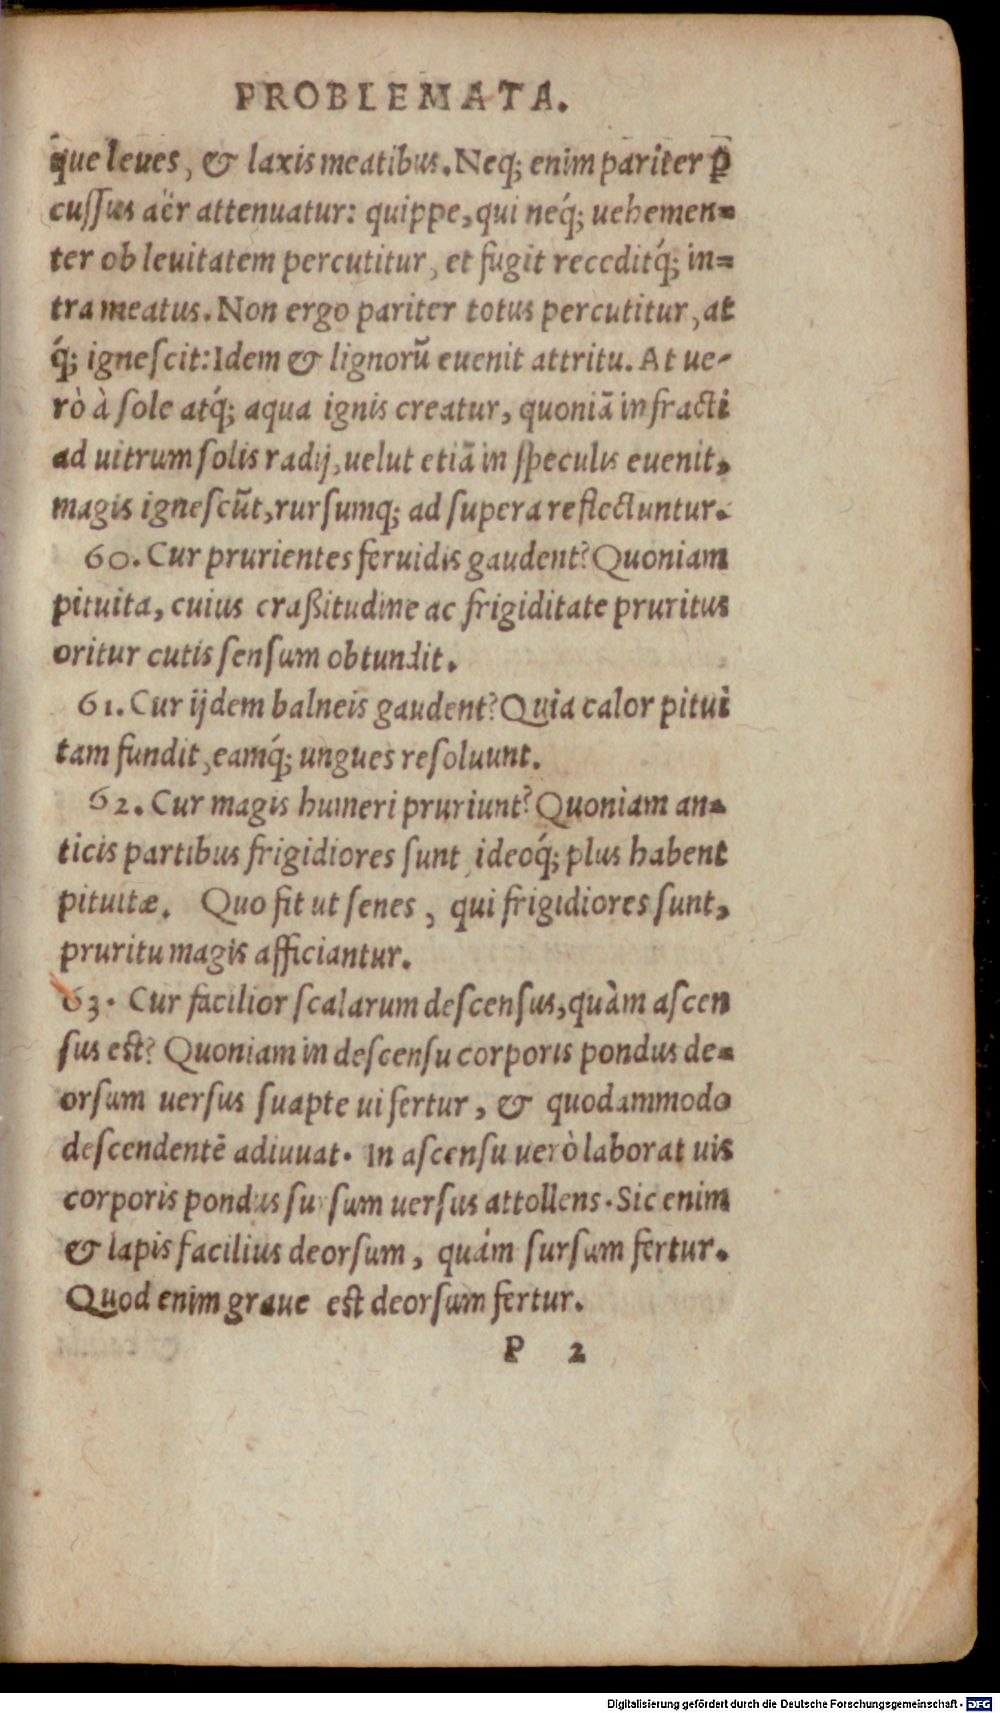 PROBLEMATA.
que leues, & laxis meatibus. Neq; enim pariter ꝑ
cussus aër attenuatur: quippe, qui neq́; uehemen-
ter ob leuitatem percutitur, et fugit receditq́; in-
tra meatus. Non ergo pariter totus percutitur, at
q́; ignescit: Idem & lignorũ euenit attritu. At ue-
rò à sole atq́; aqua ignis creatur, quoniã infracti
ad uitrum solis radij, uelut etiã in speculis euenit,
magis ignescũt, rursumq; ad supera reflectuntur.
60. Cur prurientes feruidis gaudent? Quoniam
pituita, cuius craßitudine ac frigiditate pruritus
oritur cutis sensum obtundit.
61. Cur ijdem balneis gaudent? Quia calor pitui
tam fundit, eamq́; ungues resoluunt.
62. Cur magis humeri pruriunt? Quoniam an-
ticis partibus frigidiores sunt, ideoq́; plus habent
pituitæ. Quo fit ut senes, qui frigidiores sunt,
pruritu magis afficiantur.
63. Cur facilior scalarum descensus, quàm ascen
sus est? Quoniam in descensu corporis pondus de-
orsum uersus suapte ui fertur, & quodammodo
descendentẽ adiuuat. In ascensu uerò laborat uis
corporis pondus sursum uersus attollens. Sic enim
& lapis facilius deorsum, quám sursum fertur.
Quod enim graue est deorsum fertur.
P 2
Digitalisierung gefördert durch die Deutsche Forschungsgemeinschaft - DFG